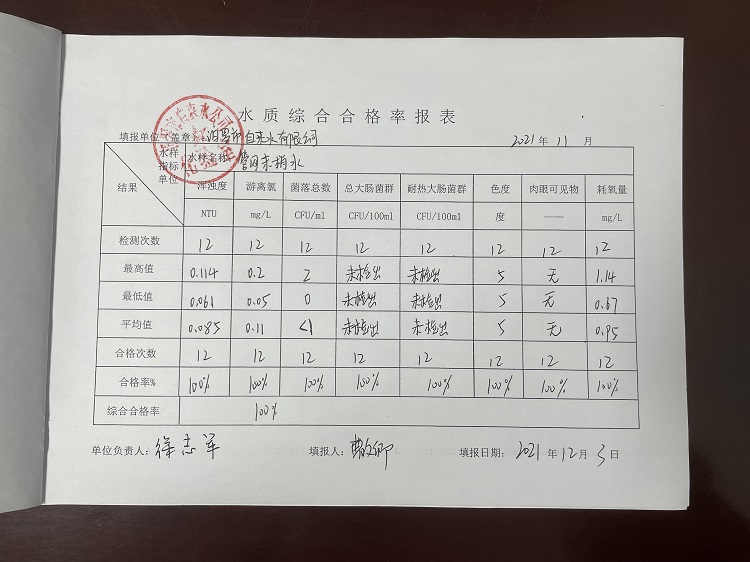 水质综合合格率报表
填报单位（盖章）：汨罗市自来水有限公司 2021 年 11 月
水样 水样名称 管网末梢水
指标
单位
结果 浑浊度 游离氯 菌落总数 总大肠菌群 耐热大肠菌群 色度 肉眼可见物 耗氧量
NTU mg/L CFU/ml CFU/100ml CFU/100ml 度 —— mg/L
检测次数 12 12 12 12 12 12 12 12
最高值 0.114 0.2 2 未检出 未检出 5 无 1.14
最低值 0.061 0.05 0 未检出 未检出 5 无 0.67
平均值 0.085 0.11 <1 未检出 未检出 5 无 0.95
合格次数 12 12 12 12 12 12 12 12
合格率% 100% 100% 100% 100% 100% 100% 100% 100%
综合合格率 100%
单位负责人：徐志军 填报人： 填报日期： 2021 年 12 月 3 日